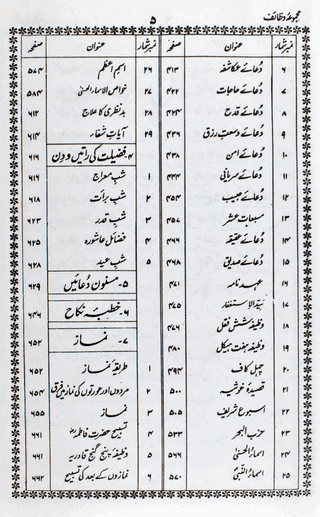 مجموعۂ وظائف
۵
نمبر شمار عنوان صفحہ
۶ دُعائے عکاشہ ۴۱۳
۷ دُعائے حاجات ۴۲۲
۸ دُعائے قدح ۴۲۴
۹ دُعائے وسعت رزق ۴۳۶
۱۰ دُعائے امن ۴۳۸
۱۱ دُعائے سریانی ۴۴۴
۱۲ دُعائے حبیب ۴۵۴
۱۳ مسبعات عشر ۴۵۷
۱۴ دُعائے عقیقہ ۴۶۶
۱۵ دُعائے صدیق ۴۶۸
۱۶ عہد نامہ ۴۷۱
۱۷ سیّد الاستغفار ۴۷۵
۱۸ وظیفہ شش قفل ۴۷۶
۱۹ وظیفہ ہفت ہیکل ۴۸۰
۲۰ چہل کاف ۴۹۴
۲۱ قصیدۂ غوثیہ ۵۰۰
۲۲ اسبوع شریف ۵۰۵
۲۳ حزب البحر ۵۳۳
۲۴ اسماءُ الحسنیٰ ۵۶۶
۲۵ اسماءُ النبیؐ ۵۷۰
نمبر شمار عنوان صفحہ
۲۶ اسمِ اعظم ۵۷۴
۲۷ خواص الاسماء الحسنیٰ ۵۸۴
۲۸ بدنظری کا علاج ۶۱۲
۲۹ آیاتِ شفاء ۶۱۴
۴۔ فضیلت کی راتیں و دن ۶۱۶
۱ شبِ معراج ۶۱۶
۲ شبِ برأت ۶۱۸
۳ شبِ قدر ۶۲۳
۴ فضائل عاشورہ ۶۲۵
۵ شبِ عید ۶۲۸
۵۔ مسنون دُعائیں ۶۲۹
۶۔ خطبۂ نکاح ۶۴۶
۷۔ نماز ۶۵۲
۱ طریقۂ نماز ۶۵۲
۲ مردوں اور عورتوں کی نماز میں فرق ۶۵۴
۳ نماز ۶۵۵
۴ تسبیح حضرت فاطمہؓ ۶۶۱
۵ وظیفہ پنج گنج قادریہ ۶۶۱
۶ نمازوں کے بعد کی تسبیح ۶۶۲